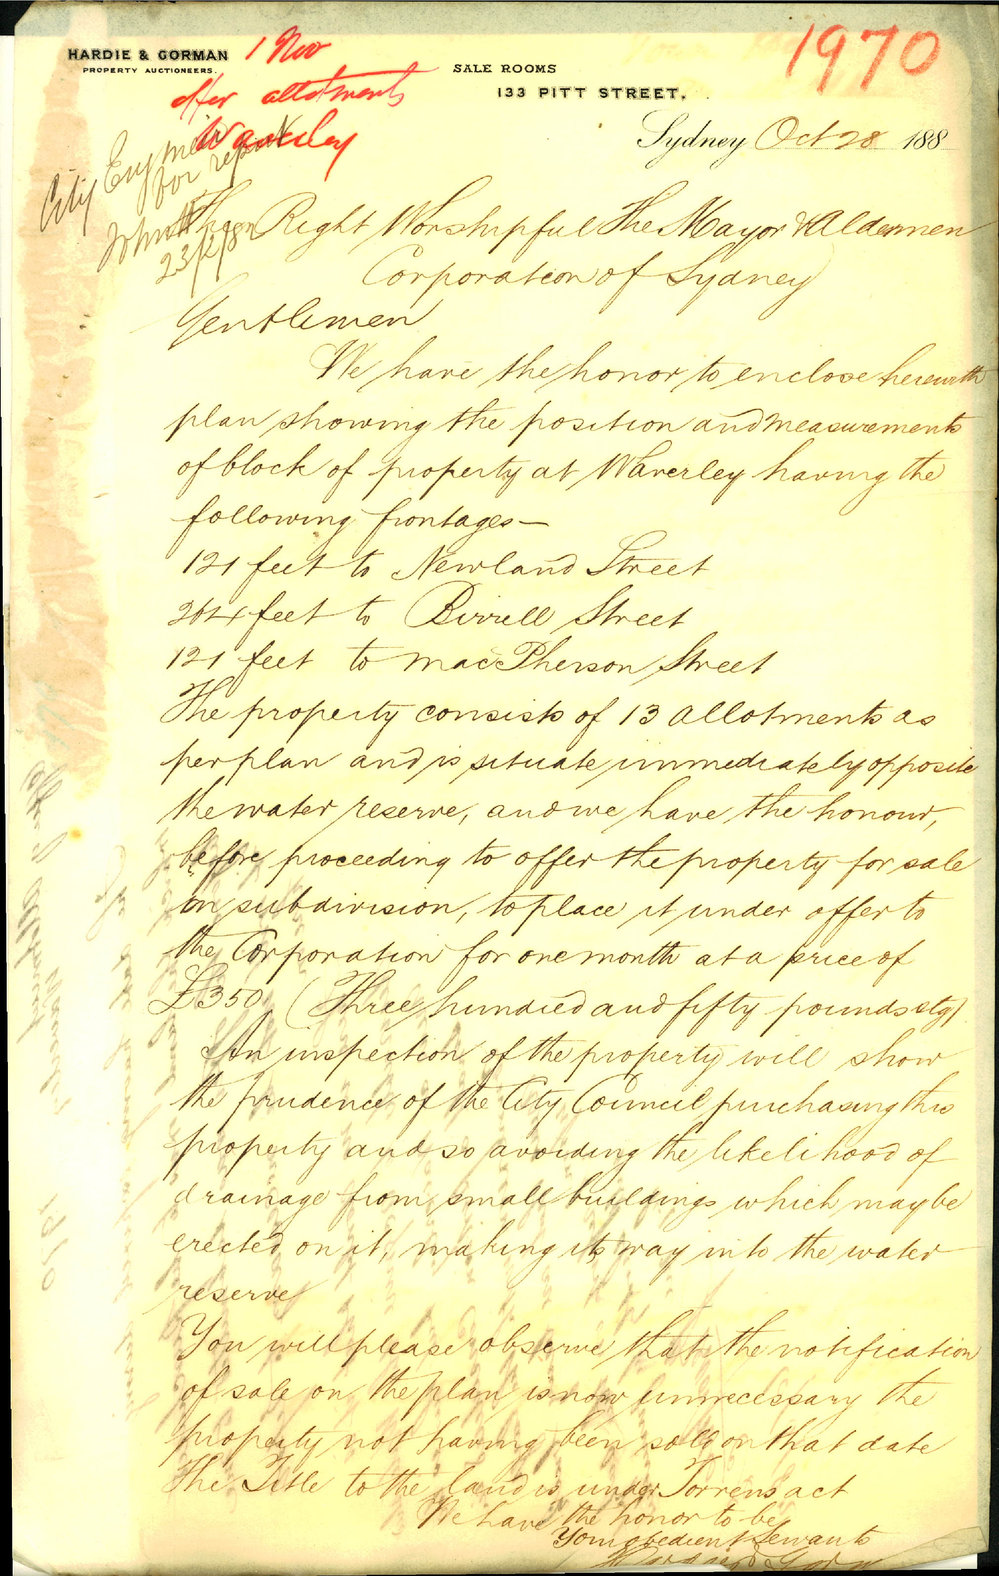 HARDIE & GORMAN
PROPERTY AUCTIONEERS.
SALE ROOMS
133 PITT STREET.
1970
1 Nov
offer allotments
Waverley
City Engineer
for report
23/2/8
Sydney Oct 28 188
The Right Worshipful The Mayor & Aldermen
Corporation of Sydney
Gentlemen
We have the honor to enclose herewith
plan showing the position and measurements
of block of property at Waverley having the
following frontages—
121 feet to Newland Street
264 feet to Birrell Street
121 feet to MacPherson Street
The property consists of 13 allotments as
per plan and is situate immediately opposite
the water reserve, and we have the honour,
before proceeding to offer the property for sale
in subdivision, to place it under offer to
the Corporation for one month at a price of
£350 (Three hundred and fifty pounds stg)
An inspection of the property will show
the prudence of the City Council purchasing this
property and so avoiding the likelihood of
drainage from small buildings which may be
erected on it, making its way into the water
reserve
You will please observe that the notification
of sale on the plan is now unnecessary the
property not having been sold on that date
The Title to the land is under Torrens act
We have the honor to be
Your obedient Servants
Hardie & Gorman